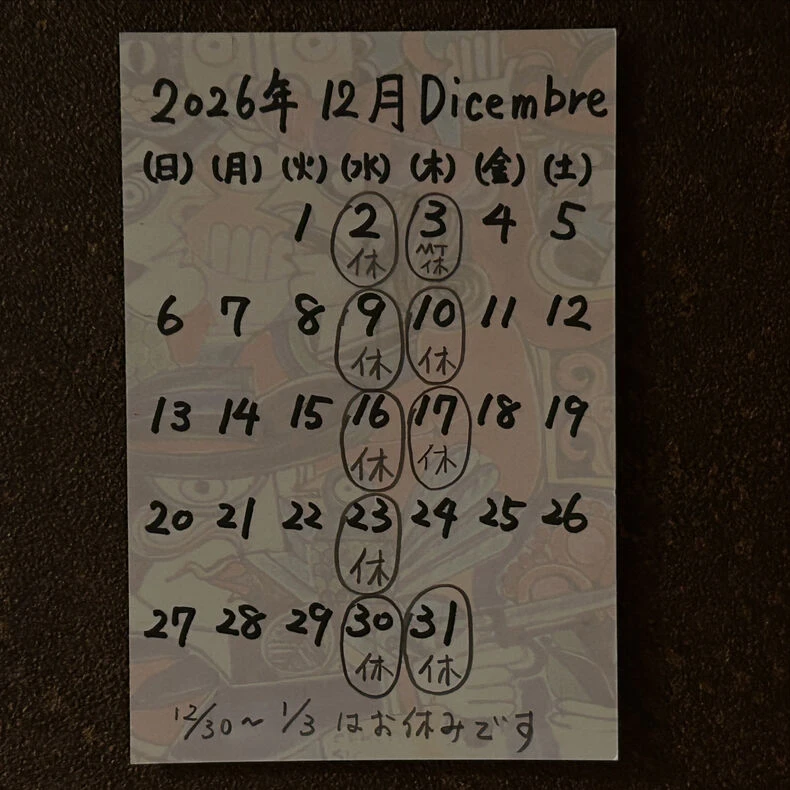 2026年 12月 Dicembre
(日) (月) (火) (水) (木) (金) (土)
1 2 3 4 5
休 MT休
6 7 8 9 10 11 12
休 休
13 14 15 16 17 18 19
休 休
20 21 22 23 24 25 26
休
27 28 29 30 31
休 休
12/30～1/3はお休みです